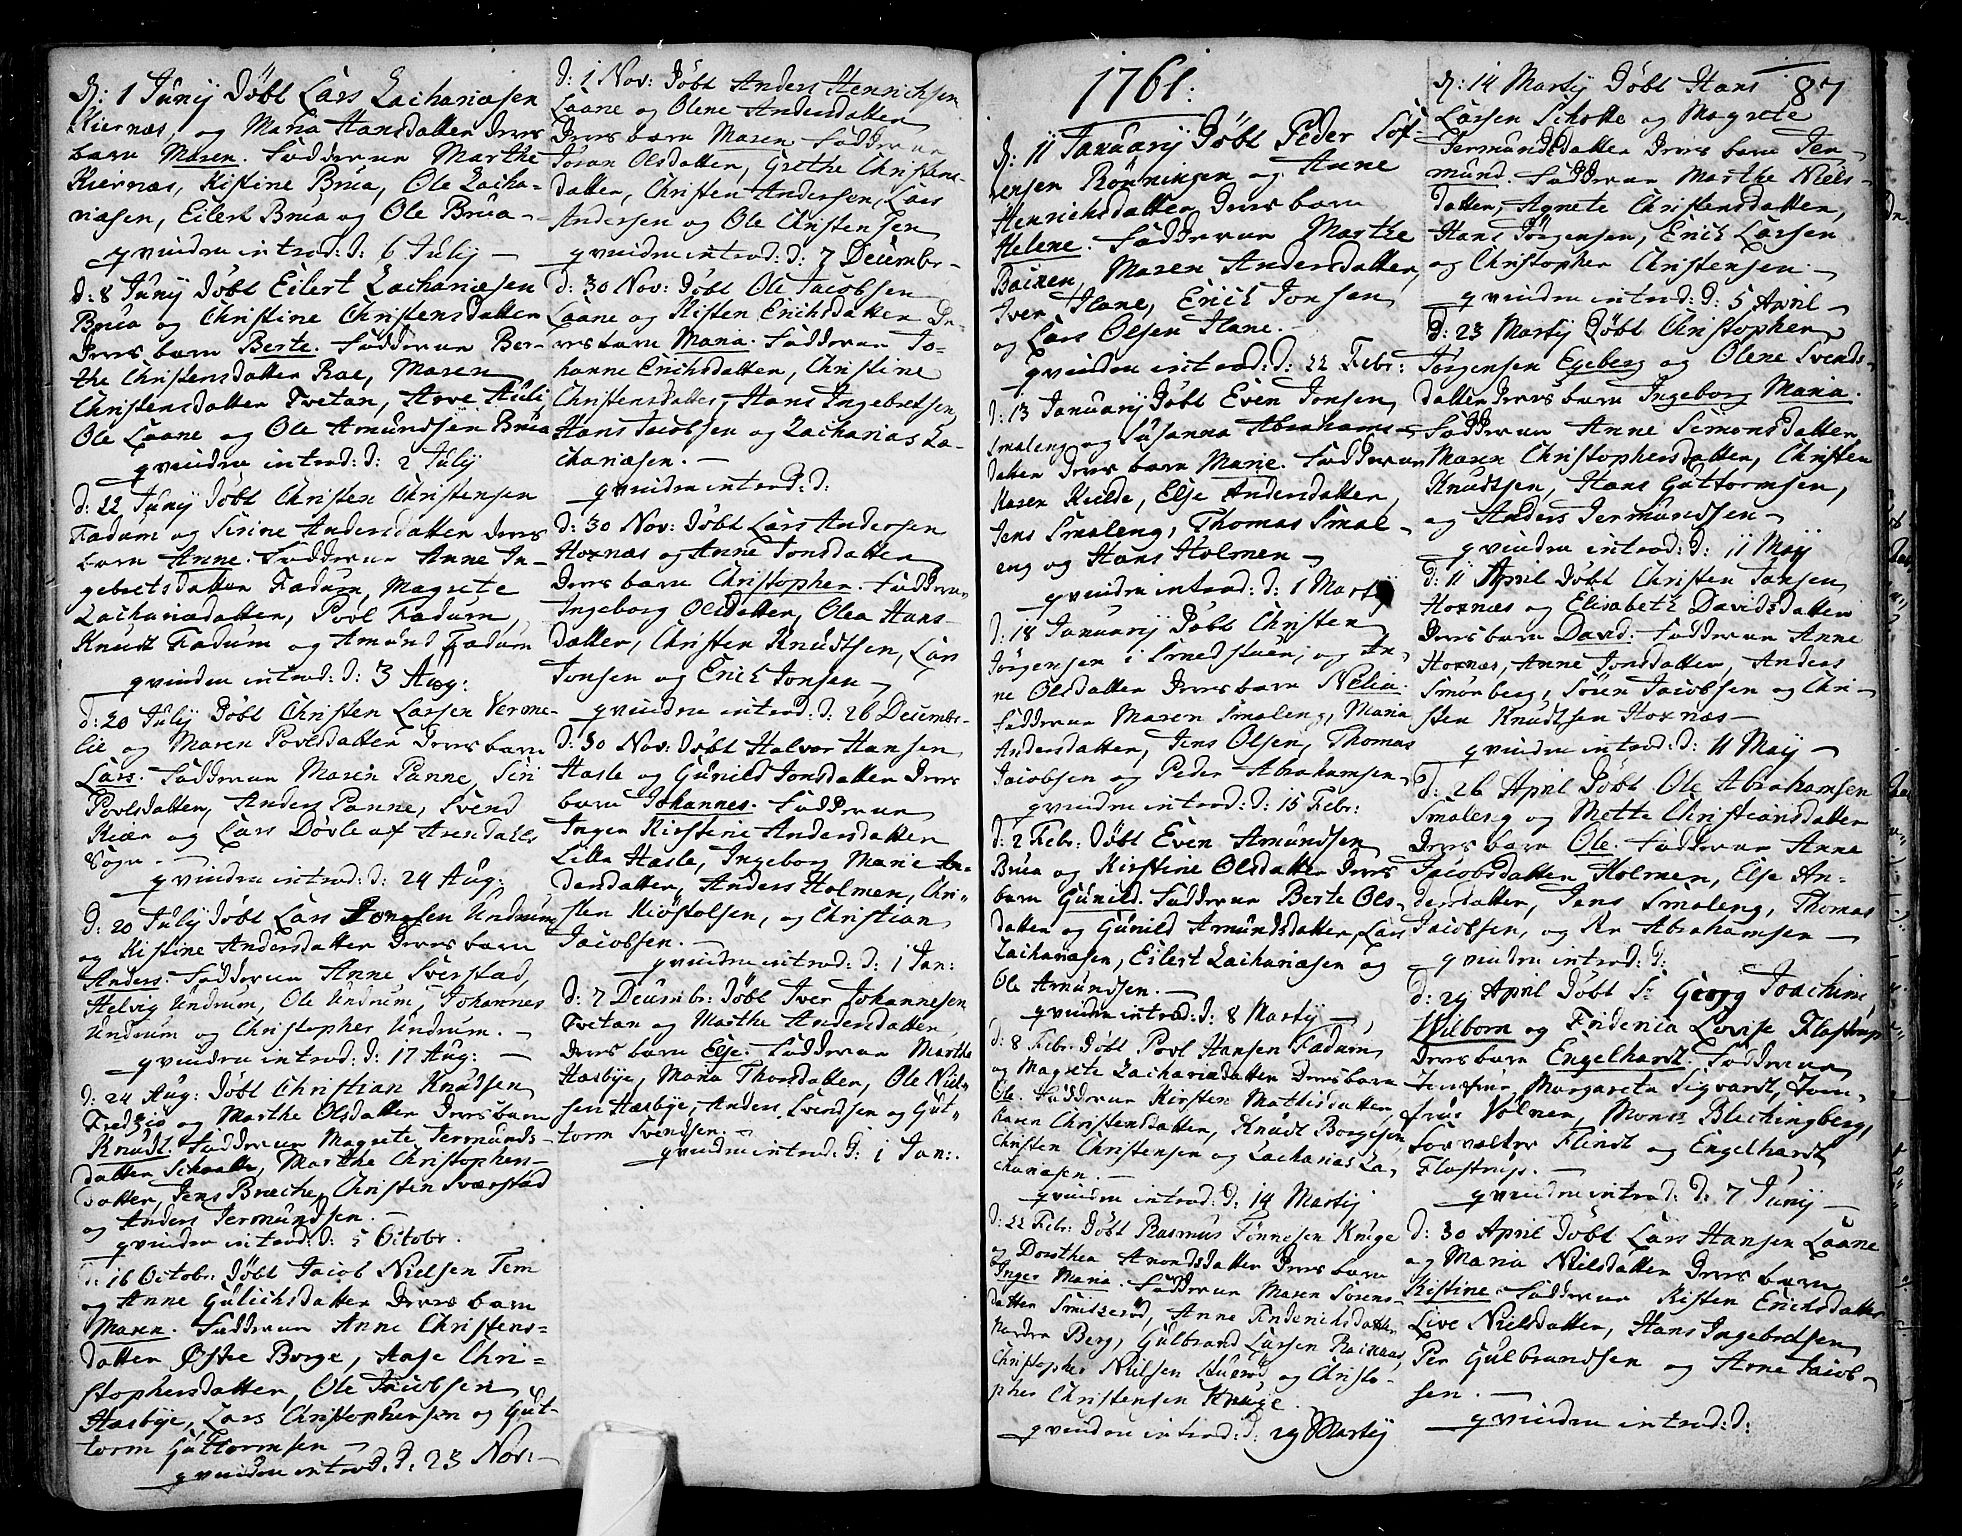 D: 1 Junij Døbt Lars Zachariæsen
Kiernæs, og Maria Hansdatter deres
barn Maren. Fadderne Marthe
Kiernæs, Kistine Brua, Ole Zacha-
riæsen, Eilert Brua og Ole Brua-
qvinden introd: d: 6 Julij -
d: 8 Junij Døbt Eilert Zachariæsen
Brua og Christine Christensdatter
Deres barn Berte. Fadderne Ber-
the Christensdatter Rae, Maren
Christensdatter Tvetan, Arve
Ole Laane og Ole Amundsen Brua
qvinden introd: d: 2 Julij
d: 22 Junij Døbt Christen Christensen
Fadum og Sirine Andersdatter deres
barn Anne. Fadderne Anne In-
gebretsdatter Fadum, Magrete
Zachariædatter, Povl Fadum,
Knudt Fadum og Amund Fadum
qvinden introd: d: 3 Aug:
d: 20 Julij Døbt Christen Larsen Verme-
lie og Maren Povlsdatter deres barn
Lars. Fadderne Maren Panne, Siri
Povlsdatter, Anders Panne, Svend
Kiær og Lars Døvle af Arendals
Sogn -
qvinden introd: d: 24 Aug:
d: 20 Julij Døbt Lars Undrum
og Kistine Andersdatter deres barn
Anders. Fadderne Anne Sverstad,
Helvig Undrum, Ole Undrum, Johannes
Undrum og Christopher Undrum. -
qvinden introd: d: 17 Aug: -
d: 24 Aug: Døbt Christian Knudsen
Fredzic og Marthe Olsdatter deres barn
Knudt. Fadderne Magrete Jermunds-
datter Marthe Christophers-
datter, Jens Bræche, Christen Sværstad
og Anders Jermundsen. -
qvinden introd: d: 5 Octobr.
d: 16 Octobr. Døbt Jacob Nielsen Tem
og Anne Gulichsdatter deres barn
Maren. Fadderne Anne Christens=
datter Østre Borge, Aase Chri=
stophersdatter, Ole Jacobsen
Hæsbye, Lars Christophersen og Gut-
torm Guttormsen -
qvinden introd. d. 23 Nov: -
d: 1 Nov: Døbt Anders Henrichsen
Laane og Olene Andersdatter
Deres barn Maren Fadderne
Joran Olsdatter, Grethe Christens-
datter, Christen Andersen, Lars
Andersen og Ole Christensen
qvinden introd: d: 7 Decembr -
d: 30 Nov: Døbt Ole Jacobsen
Laane og Kisten Erichsdatter De-
res barn Maria. Fadderne Jo-
hanne Erichsdatter, Christine
Christensdatter, Hans Ingebretsen,
Hans Jacobsen og Zacharias Za-
chariæsen. -
qvinden introd: d:
d: 30 Nov: Døbt Lars Andersen
Hoxnæs og Anne Jonsdatter
Deres barn Christopher. Fadderne
Ingeborg Olsdatter, Olea Hans-
datter, Christen Knudtsen, Lars
Jonsen og Erich Jonsen -
qvinden introd: d: 26 Decembr -
d: 30 Nov: Døbt Halvor Hansen
Hasle og Gunild Jonsdatter deres
barn Johannes. Fadderne
Inger Kirstine Andersdatter
Lille Hasle, Ingeborg Marie An-
dersdatter, Anders Holmen, Chri-
sten Kiøstolsen, og Christian
Jacobsen. -
qvinden introd: d: 1 Jan:
d: 7 Decembr: Døbt Iver Johannesen
Tvetan og Marthe Andersdatter
deres barn Else. Fadderne Marthe
Hæsbye, Maria Thorsdatter, Ole Niel-
sen Hæsbye, Anders Svendsen og Gut-
torm Svendsen. -
qvinden introd: d: 1 Jan:
1761:
D: 11 Januarij Døbt Peder Sør-
ensen Rønningen og Anne
Henrichsdatter deres barn
Helene. Fadderne Marthe
Backen, Maren Andersdatter,
Iver Hane, Erich Jonsen
og Lars Olsen Hane. -
qvinden introd: d: 22 Febr:
d: 13 Januarij Døbt Even Jonsen
Smaleng og Susanna Abrahams-
datter deres barn Marie. Fadderne
Maren Kulde, Else Andersdatter,
Jens Smaleng, Thomas Smal-
eng og Hans Holmen -
qvinden introd: d: 1 Martij
d: 18 Januarij Døbt Christen
Jørgensen i Smedstuen, og An-
ne Olsdatter deres barn Nelia
Fadderne Maren Smaleng, Maria
Andersdatter, Jens Olsen, Thomas
Jacobsen og Peder Abrahamsen -
qvinden introd: d: 15 Febr:
d: 2 Febr: Døbt Even Amundsen
Brua og Kirstine Olsdatter deres
barn Gunild. Fadderne Berte Ols-
datter og Gunild Amundsdatter, Lars
Zachariæsen, Eilert Zachariæsen og
Ole Amundsen. -
qvinden introd: d: 8 Martij -
d: 8 Febr. Døbt Povl Hansen Fadum
og Magrete Zachariædatter deres barn
Ole. Fadderne Kirsten Mathisdatter,
Karen Christensdatter, Knudt Borgesen,
Christen Christensen og Zacharias Za-
chariæsen. -
qvinden introd: d: 14 Martij
d: 22 Febr: Døbt Rasmus Tønnesen Knuge
og Dorothea Amondsdatter deres barn
Inger Maria. Fadderne Maren Sørens-
datter Smidzerød, Anne Friderichsdatter
Nordre Berg, Gulbrand Larsen Raknæs,
Christopher Nielsen og Christo-
pher Christensen Knuge.
qvinden introd: d: 29 Martij
87
D: 14 Martij Døbt Hans
Larsen Schotte og Magrete
Jermundsdatter deres barn Jer-
mund. Fadderne Marthe Niels-
datter, Agnete Christensdatter,
Hans Jørgensen, Erich Larsen
og Christopher Christensen -
qvinden introd: d: 5 April -
D: 23 Martij Døbt Christopher
Jørgensen Egeberg og Olene Svends-
datter deres barn Ingeborg Maria.
Fadderne Anne Simonsdatter,
Maren Christophersdatter, Christen
Knudtsen, Hans Guttormsen,
og Anders Jermundsen -
qvinden introd: d: 11 Maij
d: 11 April Døbt Christen Jansen
Hoxnæs og Elisabeth Davidsdatter
deres barn David. Fadderne Anne
Hoxnæs, Anne Jonsdatter, Anders
Smørberg, Søren Jacobsen og Chri-
sten Knudtsen Hoxnæs -
qvinden introd: d: 11 Maij -
D: 26 April Døbt Ole Abrahamsen
Smaleng og Mette Christiansdatter
Deres barn Ole. Fadderne Anne
Jacobsdatter Holmen, Else An-
dersdatter, Jens Smaleng, Thomas
Jacobsen, og Per Abrahamsen -
qvinden introd: d:
d: 29 April Døbt Sr Georg Joachim
Wilborn og Friderica Lovise Flostrup
deres barn Engelhardt. Fadderne
Jomfrue Margareta Sigvardt, Jom-
frue Volner, Monsr Blechingberg,
Forvalter Flindt og Engelhardt
Flostrup. -
qvinden introd: d: 7 Junij -
d: 30 April Døbt Lars Hansen Laane
og Maria Nielsdatter deres barn
Kistine. Fadderne Kisten Erichsdatter
Live Nielsdatter, Hans Ingebretsen
Per Gulbrandsen og Arne Jacob-
sen. -
qvinden introd: d: